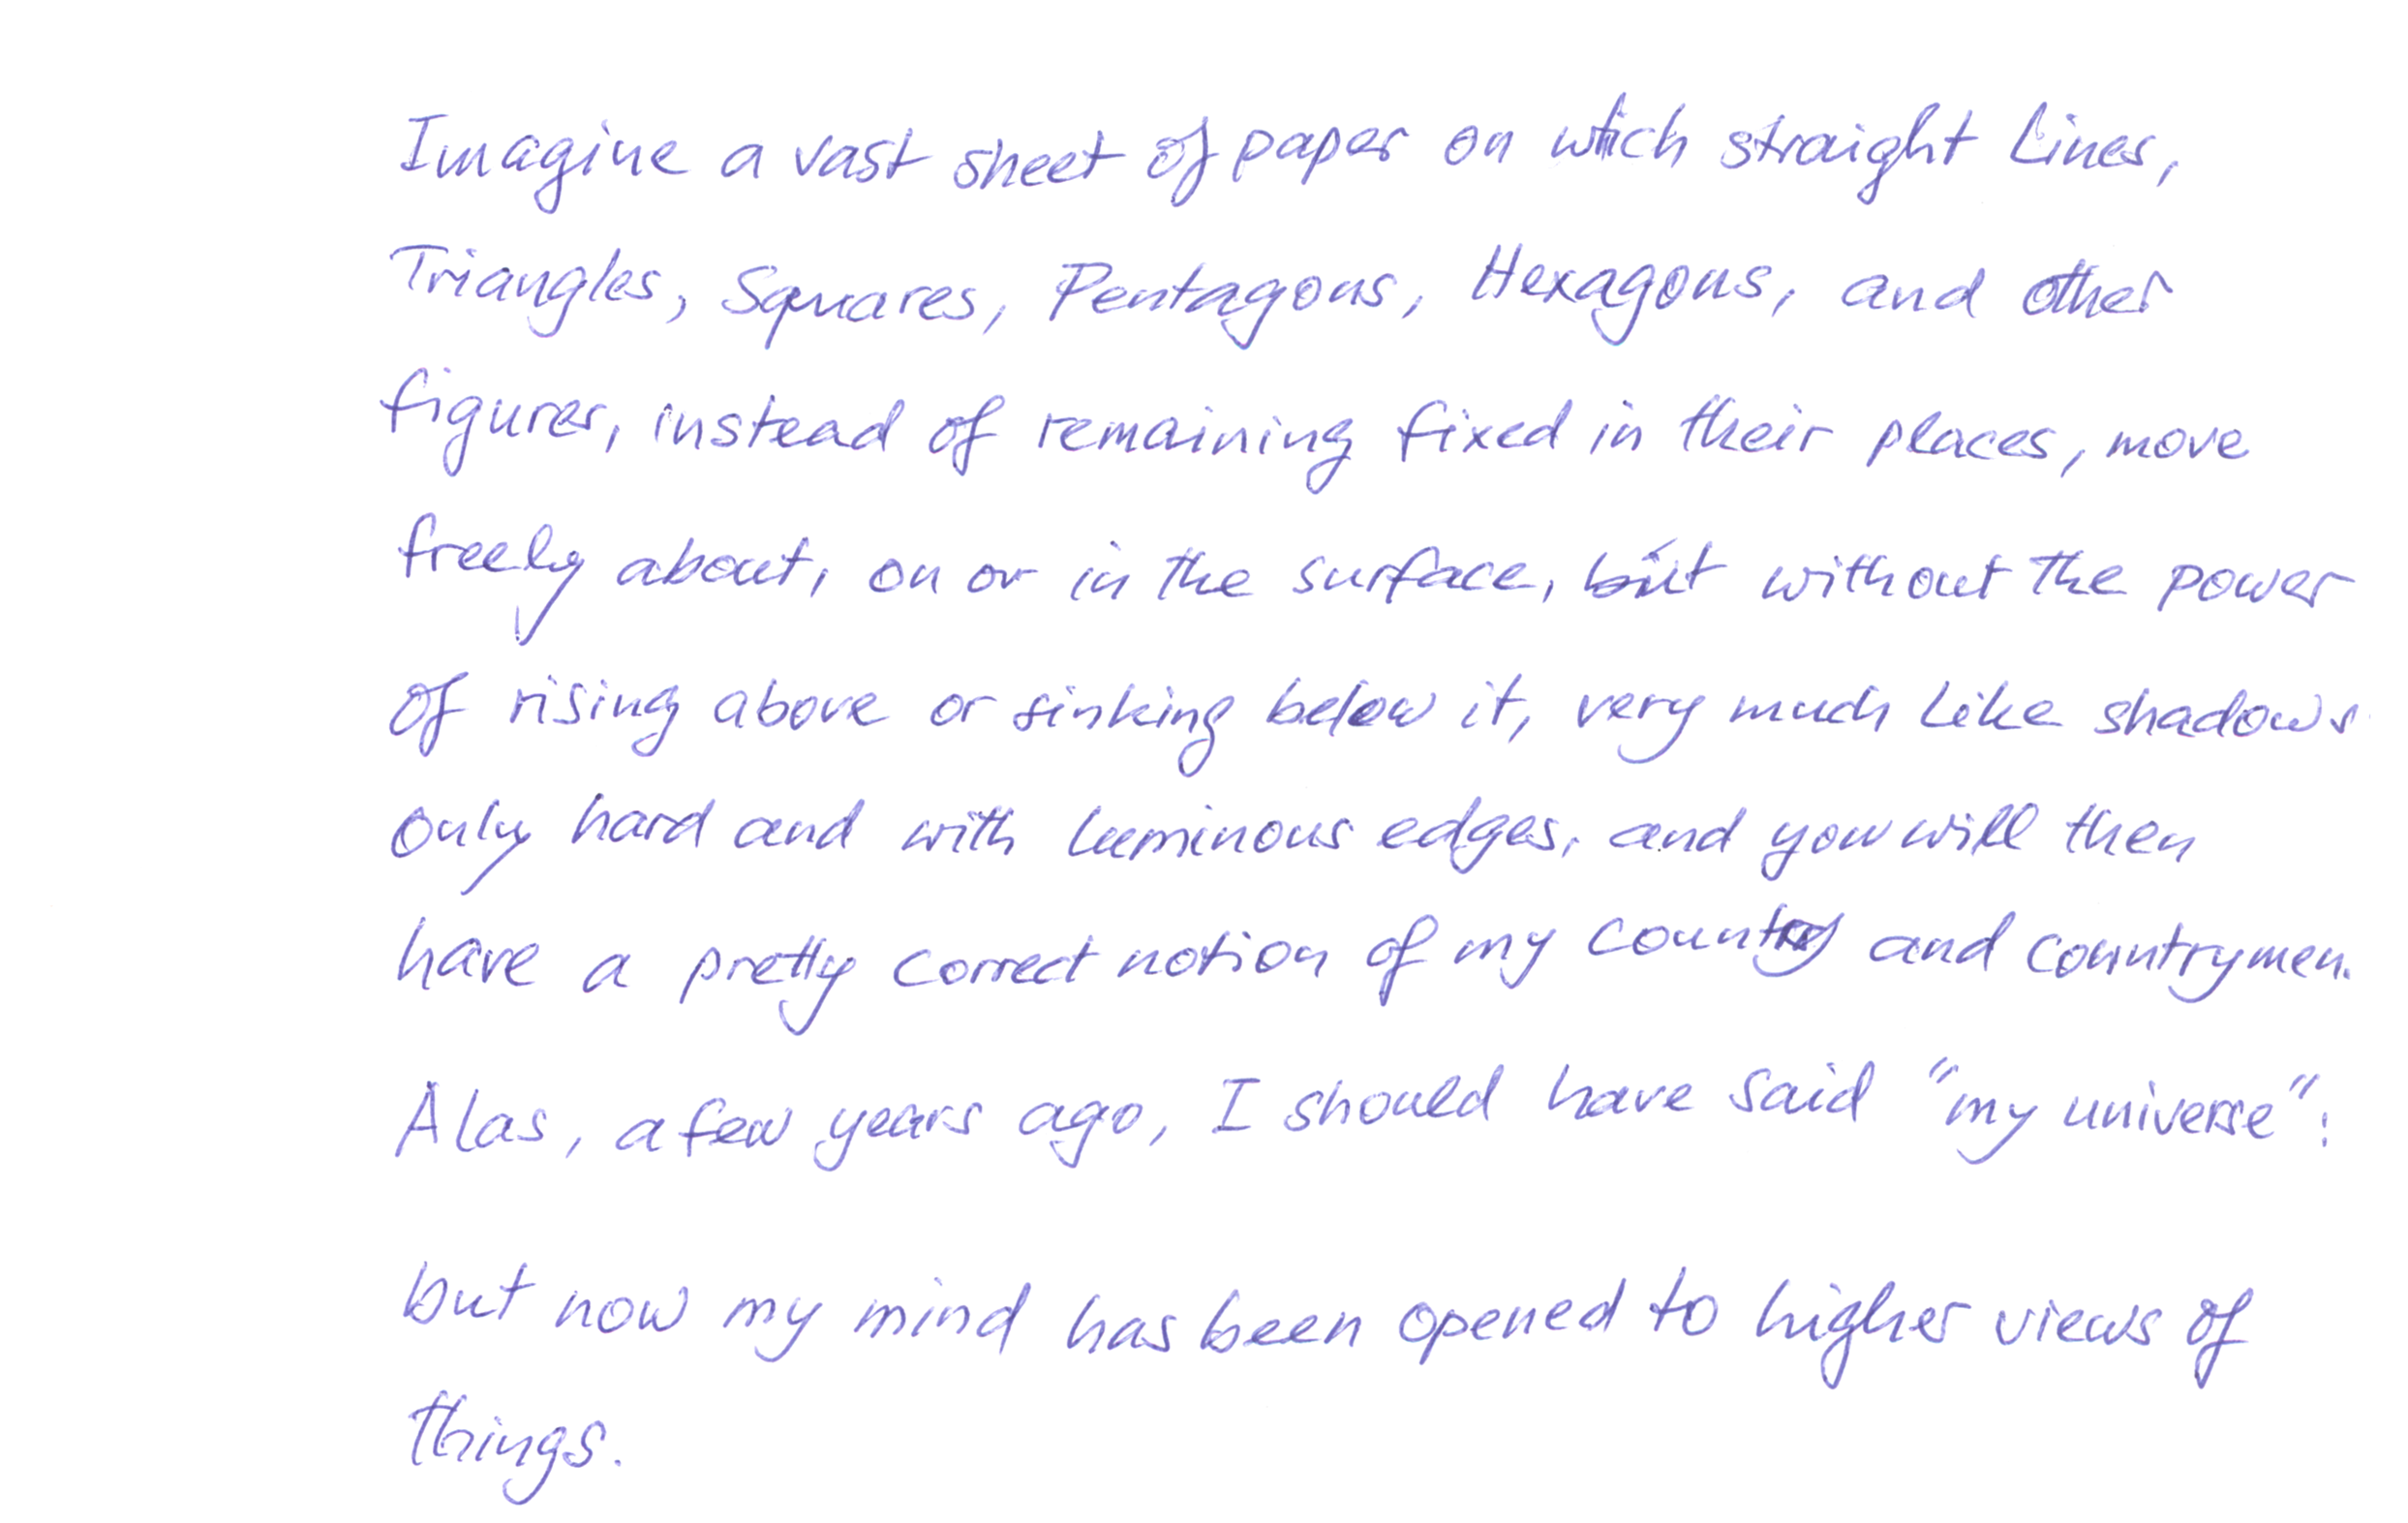 Imagine a vast sheet of paper on which straight Lines,
Triangles, Squares, Pentagons, Hexagons, and other
figures, instead of remaining fixed in their places, move
freely about, on or in the surface, but without the power
of rising above or sinking below it, very much like shadows
only hard and with luminous edges, and you will then
have a pretty correct notion of my country and countrymen.
Alas, a few years ago, I should have said "my universe":
but now my mind has been opened to higher views of
things.